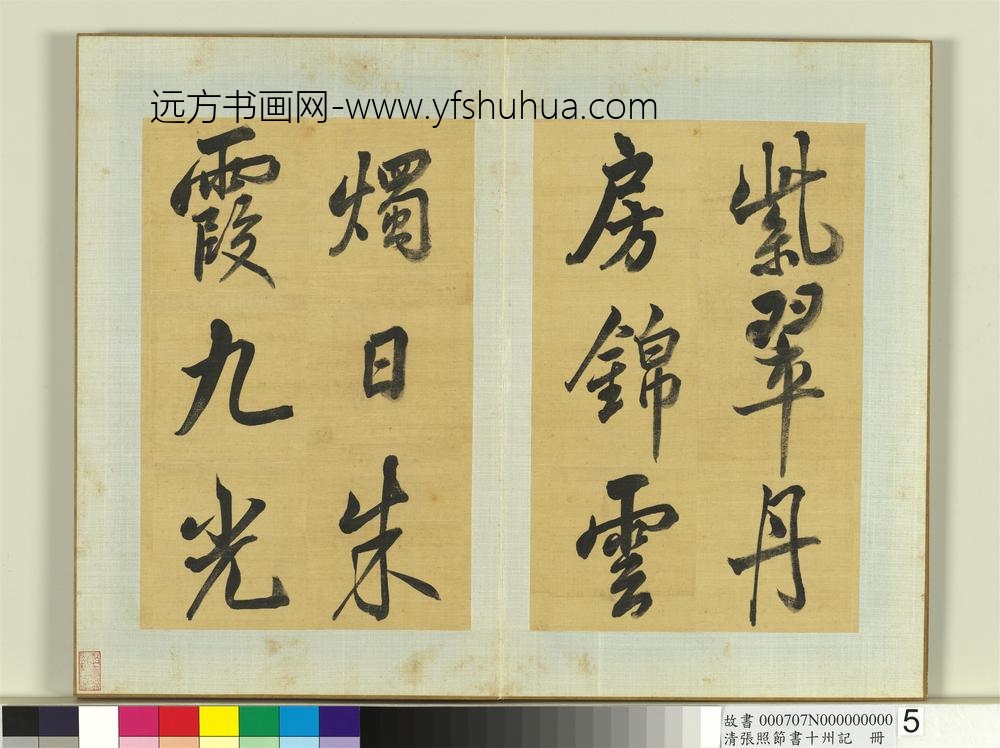 远方书画网-www.yfshuhua.com
紫翠丹
房錦雲
燭日朱
霞九光
故書 000707N000000000
清張照節書十州記 冊
5